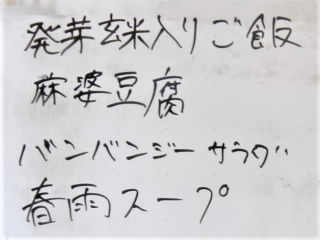 発芽玄米入りご飯
麻婆豆腐
バンバンジーサラダ
春雨スープ